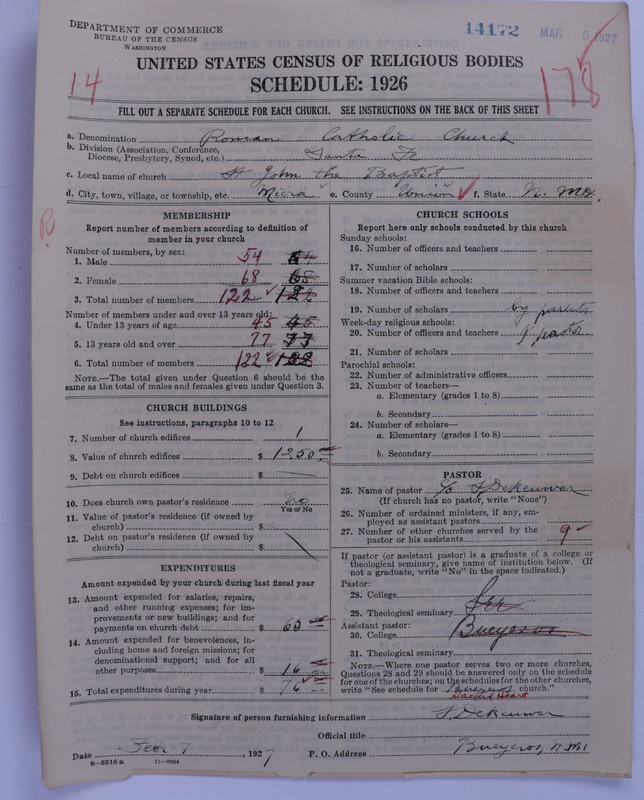 DEPARTMENT OF COMMERCE
BUREAU OF THE CENSUS
WASHINGTON
14172
MAR 5 1927
UNITED STATES CENSUS OF RELIGIOUS BODIES
SCHEDULE: 1926
14
178
FILL OUT A SEPARATE SCHEDULE FOR EACH CHURCH. SEE INSTRUCTIONS ON THE BACK OF THIS SHEET
a. Denomination Roman Catholic Church
b. Division (Association, Conference, Diocese, Presbytery, Synod, etc.) Santa Fe
c. Local name of church St John the Baptist
d. City, town, village, or township, etc. e. County Union f. State N. Mex.
MEMBERSHIP
Report number of members according to definition of member in your church
Number of members, by sex:
1. Male 54
2. Female 68 68
3. Total number of members 122 122
Number of members under and over 13 years old:
4. Under 13 years of age 45 45
5. 13 years old and over 77 77
6. Total number of members 122 122
NOTE.—The total given under Question 6 should be the same as the total of males and females given under Question 3.
CHURCH BUILDINGS
See instructions, paragraphs 10 to 12
7. Number of church edifices 1
8. Value of church edifices $ 1250
9. Debt on church edifices $
10. Does church own pastor's residence No
Yes or No
11. Value of pastor's residence (if owned by church) $
12. Debt on pastor's residence (if owned by church) $
EXPENDITURES
Amount expended by your church during last fiscal year
13. Amount expended for salaries, repairs, and other running expenses; for improvements or new buildings; and for payments on church debt $ 60
14. Amount expended for benevolences, including home and foreign missions; for denominational support; and for all other purposes $ 16
15. Total expenditures during year $ 76
CHURCH SCHOOLS
Report here only schools conducted by this church
Sunday schools:
16. Number of officers and teachers
17. Number of scholars
Summer vacation Bible schools:
18. Number of officers and teachers
19. Number of scholars by parents
Week-day religious schools:
20. Number of officers and teachers & pastor
21. Number of scholars
Parochial schools:
22. Number of administrative officers
23. Number of teachers—
a. Elementary (grades 1 to 8)
b. Secondary
24. Number of scholars—
a. Elementary (grades 1 to 8)
b. Secondary
PASTOR
25. Name of pastor DeKeuwer
(If church has no pastor, write "None")
26. Number of ordained ministers, if any, employed as assistant pastors
27. Number of other churches served by the pastor or his assistants 9
If pastor (or assistant pastor) is a graduate of a college or theological seminary, give name of institution below. (If not a graduate, write "No" in the space indicated.)
Pastor:
28. College
29. Theological seminary
Assistant pastor:
30. College Bueyeros
31. Theological seminary
NOTE.—Where one pastor serves two or more churches, Questions 28 and 29 should be answered only on the schedule for one of the churches; on the schedules for the other churches, write "See schedule for Bueyeros church."
Sacred Heart
Signature of person furnishing information DeKeuwer
Official title
Date Feb 7, 1927 P. O. Address Bueyeros, N.M.
8—5518a 11—9054